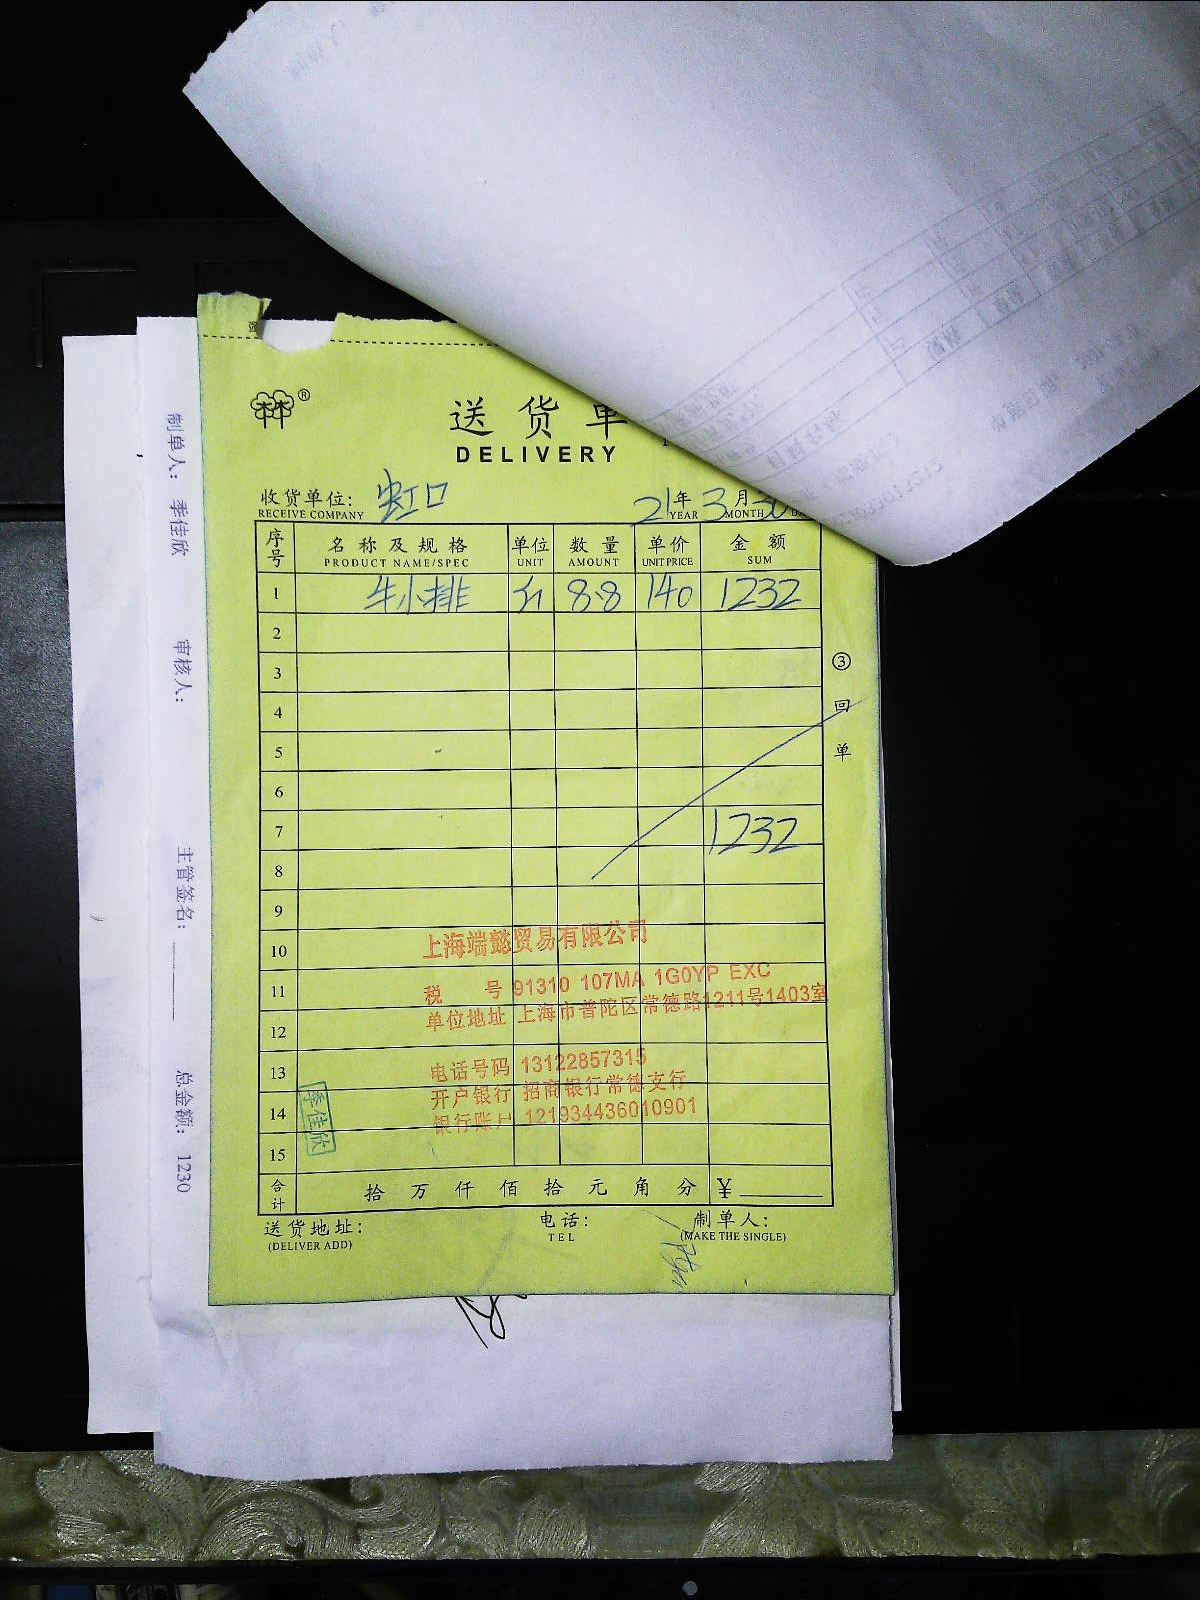 林®
送货单
DELIVERY
收货单位: 虹口
RECEIVE COMPANY
21年 3月 30
YEAR MONTH
序号 名称及规格 单位 数量 单价 金额
PRODUCT NAME/SPEC UNIT AMOUNT UNIT PRICE SUM
1 牛小排 8.8 140 1232
2
3
4
5
6
7 1232
8
9
10
11
12
13
14
15
③回单
上海端懿贸易有限公司
税 号 91310 107MA 1G0YP EXC
单位地址 上海市普陀区常德路1211号1403室
电话号码 13122857315
开户银行 招商银行常德支行
银行账户 121934436010901
季佳欣
合计 拾 万 仟 佰 拾 元 角 分 ¥
送货地址: 电话: 制单人:
(DELIVER ADD) TEL (MAKE THE SINGLE)
制单人: 季佳欣 审核人: 主管签名: 总金额: 1230